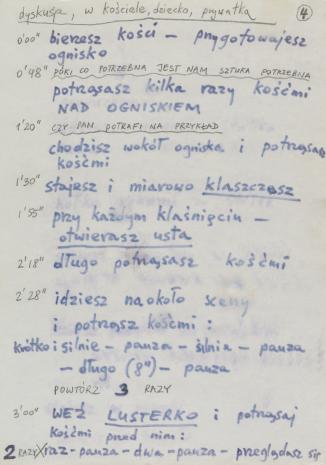 dyskusja, w kościele, dziecko, prywatka
4
0'00" bierzesz kości – przygotowujesz
ognisko
0'48" PÓKI CO POTRZEBNA JEST NAM SZTUKA POTRZEBNA
potrząsasz kilka razy kośćmi
NAD OGNISKIEM
1'20" CZY PAN POTRAFI NA PRZYKŁAD
chodzisz wokół ogniska i potrząsasz
kośćmi
1'30" stajesz i miarowo klaszczesz
1'55" przy każdym klaśnięciu –
otwierasz usta
2'18" długo potrząsasz kośćmi
2'28" idziesz naokoło sceny
i potrząsz kośćmi :
krótko i silnie – pauza – silnia – pauza
– długo (8") – pauza
POWTÓRZ 3 RAZY
3'00" WEŹ LUSTERKO i potrząsaj
kośćmi przed nim :
2 RAZY raz – pauza – dwa – pauza – przeglądasz się